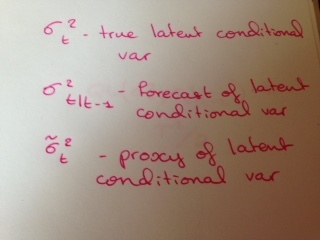 σ²_t - true latent conditional
var
σ²_t|t-1 - Forecast of latent
conditional var
σ̃²_t - proxy of latent
conditional var